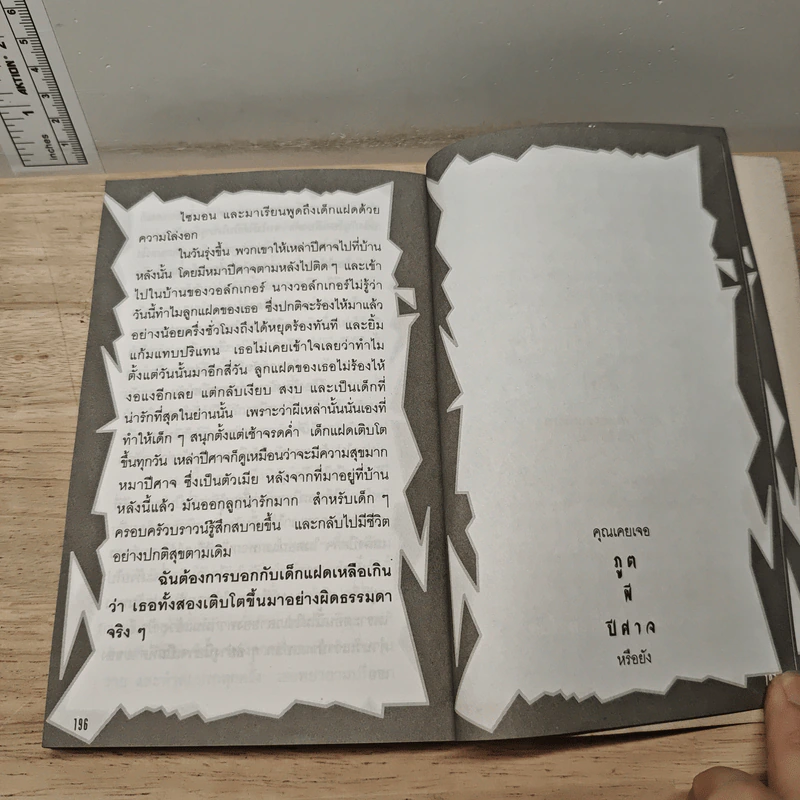 6
2
5
AKTION
4
3
1
2
inches
1
ไซมอน และมาเรียนพูดถึงเด็กแฝดด้วย
ความโล่งอก
ในวันรุ่งขึ้น พวกเขาให้เหล่าปีศาจไปที่บ้าน
หลังนั้น โดยมีหมาปีศาจตามหลังไปติด ๆ และเข้า
ไปในบ้านของวอล์กเกอร์ นางวอล์กเกอร์ไม่รู้ว่า
วันนี้ทำไมลูกแฝดของเธอ ซึ่งปกติจะร้องไห้มาแล้ว
อย่างน้อยครึ่งชั่วโมงถึงได้หยุดร้องทันที และยิ้ม
แก้มแทบปริแทน เธอไม่เคยเข้าใจเลยว่าทำไม
ตั้งแต่วันนั้นมาอีกสี่วัน ลูกแฝดของเธอไม่ร้องไห้
งอแงอีกเลย แต่กลับเงียบ สงบ และเป็นเด็กที่
น่ารักที่สุดในย่านนั้น เพราะว่าผีเหล่านั้นนั่นเองที่
ทำให้เด็ก ๆ สนุกตั้งแต่เช้าจรดค่ำ เด็กแฝดเติบโต
ขึ้นทุกวัน เหล่าปีศาจก็ดูเหมือนว่าจะมีความสุขมาก
หมาปีศาจ ซึ่งเป็นตัวเมีย หลังจากที่มาอยู่ที่บ้าน
หลังนี้แล้ว มันออกลูกน่ารักมาก สำหรับเด็ก ๆ
ครอบครัวบราวน์รู้สึกสบายขึ้น และกลับไปมีชีวิต
อย่างปกติสุขตามเดิม
ฉันต้องการบอกกับเด็กแฝดเหลือเกิน
ว่า เธอทั้งสองเติบโตขึ้นมาอย่างผิดธรรมดา
จริง ๆ
196
คุณเคยเจอ
ภูต
ผี
ปีศาจ
หรือยัง